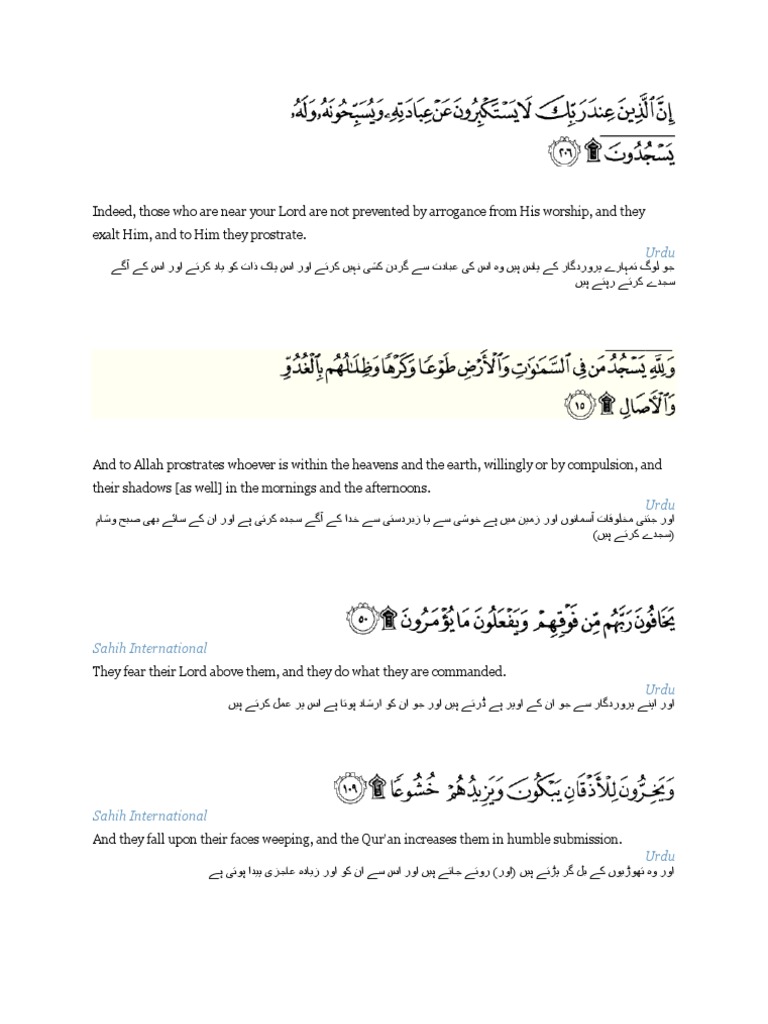 إِنَّ ٱلَّذِينَ عِندَ رَبِّكَ لَا يَسْتَكْبِرُونَ عَنْ عِبَادَتِهِۦ وَيُسَبِّحُونَهُۥ وَلَهُۥ
يَسْجُدُونَ ۩ ٢٠٦
Indeed, those who are near your Lord are not prevented by arrogance from His worship, and they
exalt Him, and to Him they prostrate.
Urdu
جو لوگ تمہارے پروردگار کے پاس ہیں وہ اس کی عبادت سے گردن کشی نہیں کرتے اور اس پاک ذات کو یاد کرتے اور اس کے آگے
سجدے کرتے رہتے ہیں
وَلِلَّهِ يَسْجُدُ مَن فِى ٱلسَّمَـٰوَٰتِ وَٱلْأَرْضِ طَوْعًا وَكَرْهًا وَظِلَـٰلُهُم بِٱلْغُدُوِّ
وَٱلْـَٔاصَالِ ۩ ١٥
And to Allah prostrates whoever is within the heavens and the earth, willingly or by compulsion, and
their shadows [as well] in the mornings and the afternoons.
Urdu
اور جتنی مخلوقات آسمانوں اور زمین میں ہے خوشی سے یا زبردستی سے خدا کے آگے سجدہ کرتی ہے اور ان کے سائے بھی صبح وشام
(سجدے کرتے ہیں)
يَخَافُونَ رَبَّهُم مِّن فَوْقِهِمْ وَيَفْعَلُونَ مَا يُؤْمَرُونَ ۩ ٥٠
Sahih International
They fear their Lord above them, and they do what they are commanded.
Urdu
اور اپنے پروردگار سے جو ان کے اوپر ہے ڈرتے ہیں اور جو ان کو ارشاد ہوتا ہے اس پر عمل کرتے ہیں
وَيَخِرُّونَ لِلْأَذْقَانِ يَبْكُونَ وَيَزِيدُهُمْ خُشُوعًا ۩ ١٠٩
Sahih International
And they fall upon their faces weeping, and the Qur'an increases them in humble submission.
Urdu
اور وہ تھوڑیوں کے بل گر پڑتے ہیں (اور) روتے جاتے ہیں اور اس سے ان کو اور زیادہ عاجزی پیدا ہوتی ہے